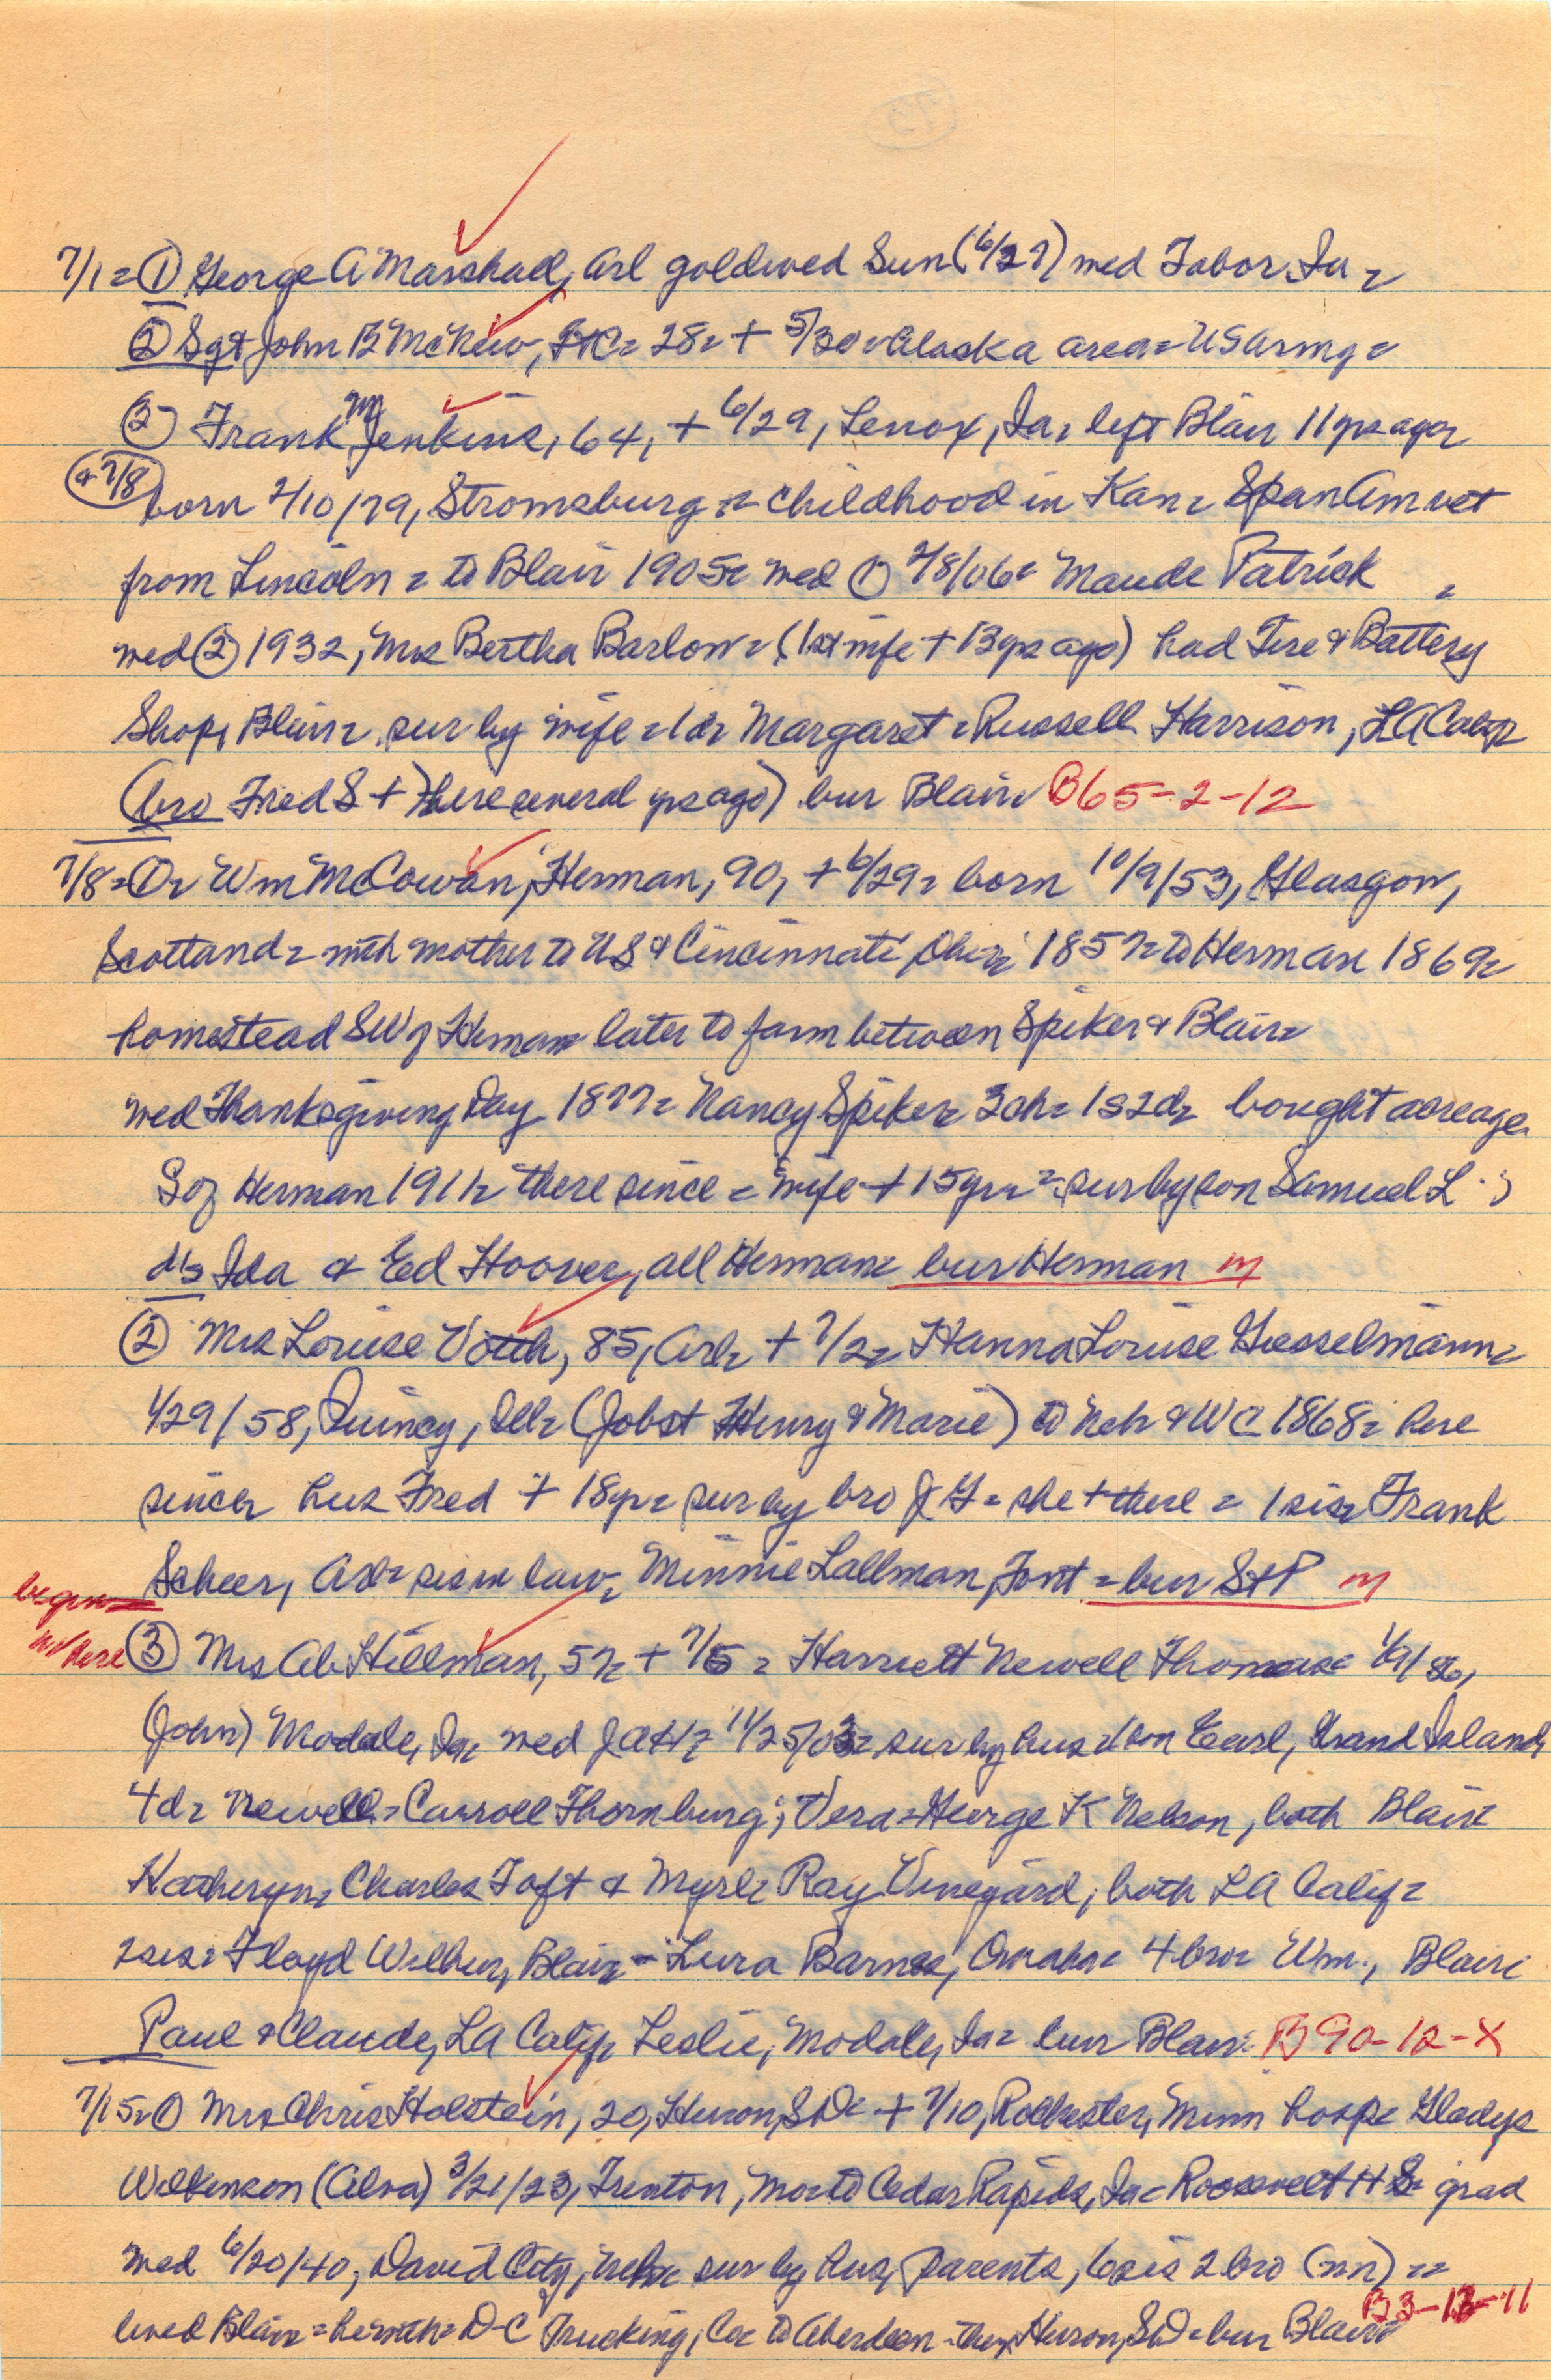 7/1 = ① George A Marshall, Arl goldwed Sun (6/27) wed Tabor Ia =
② Sgt John B McKew, = 28 = + 5/30 = Alaska area = US Army =
③ Frank M Jenkins, 64, + 6/29, Lenox, Ia, left Blair 11 yrs ago =
& 7/8
born 2/10/79, Stromsburg = childhood in Kan = Span Am vet
from Lincoln = to Blair 1905 = wed ① 2/8/06 = Maude Patrick =
wed ② 1932, Mrs Bertha Barlow = (1st wife + 13 yrs ago) had Tire & Battery
Shop, Blair = sur by wife = 1 d = Margaret = Russell Harrison, LA Calif =
(bro Fred S + here several yrs ago) bur Blair = B65-2-12
7/8 = ① = Wm McCowan, Herman, 90, + 6/29 = born 10/9/53, Glasgow,
Scotland = with mother to US & Cincinnati, Ohio = 1857 = to Herman 1869 =
homestead SW of Herman later to farm between Spiker & Blair =
wed Thanksgiving Day 1877 = Nancy Spiker = 3 ch = 1 s 2 d = bought acreage
S of Herman 1911 = there since = wife + 15 yrs = sur by son Samuel L ;
ds Ida & Ed Hoover, all Herman = bur Herman m
② Mrs Louise Voth, 85, Arl = + 7/2 = Hanna Louise Goesselmann =
1/29/58, Quincy, Ill = (Jobst Henry & Marie) to Neb & WC 1868 = here
since = hus Fred + 18 yr = sur by bro J G = she + there = 1 sis = Frank
Scheer, Arl = sis in law = Minnie Lallman, Font = bur St P m
begin
here
③ Mrs Ab Hillman, 57 = + 7/5 = Harriett Newell Thomas = 1/9/86,
(John) Modale, Ia = wed J A H = 11/25/03 = sur by hus 1 son Earl, Grand Island,
4 d = Newell = Carroll Thornburg; Vera = George K Nelson, both Blair =
Katheryn = Charles Toft & Myrl = Ray Vinegard, both LA Calif =
2 sis = Floyd Wilbur, Blair - Lura Barnes, Omaha = 4 bro = Wm., Blair =
Paul & Claude, LA Calif = Leslie, Modale, Ia = bur Blair = B90-12-X
7/15 = ① Mrs Chris Holstein, 20, Huron, SD = + 7/10, Rochester, Minn hosp = Gladys
Wilkinson (Alva) 3/21/23, Trenton, Mo = to Cedar Rapids, Ia = Roosevelt H S = grad
wed 6/20/40, David City, Neb = sur by hus, parents, 6 sis 2 bro (nn) =
lived Blair = he with = D-C Trucking, Co = to Aberdeen - then Huron, SD = bur Blair = B3-13-11